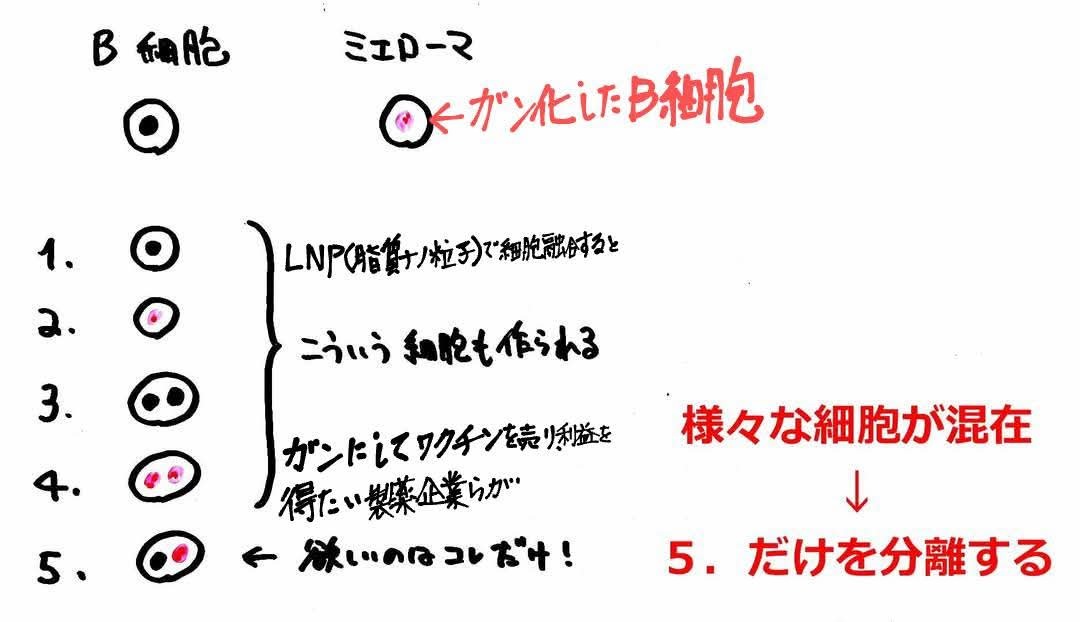 B 細胞
ミエローマ
←ガン化したB細胞
1.
LNP(脂質ナノ粒子)で細胞融合すると
2.
こういう 細胞も作られる
3.
4.
ガンにしてワクチンを売り利益を
得たい製薬企業らが
5.
← 欲しいのはコレだけ!
様々な細胞が混在
↓
5．だけを分離する